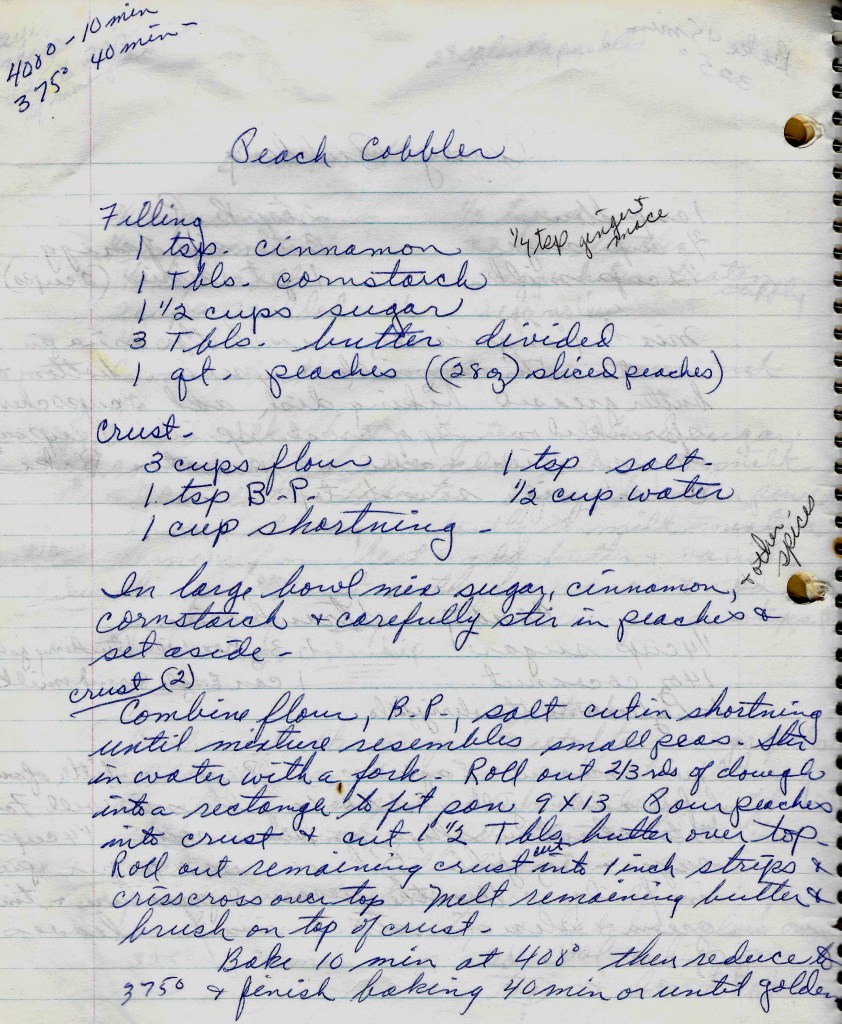 400° - 10 min
375° 40 min -
Peach Cobbler
Filling
1 tsp. cinnamon
1/4 tsp ginger +
mace
1 Tbls. cornstarch
1 1/2 cups sugar
3 Tbls. butter divided
1 qt. peaches ((28 oz) sliced peaches)
Crust -
3 cups flour
1 tsp salt -
1 tsp B.P.
1/2 cup water
1 cup shortning -
In large bowl mix sugar, cinnamon,
+ other
spices
cornstarch + carefully stir in peaches &
set aside -
crust (2)
Combine flour, B.P., salt cut in shortning
until mixture resembles small peas. Stir
in water with a fork - Roll out 2/3 rds of dough
into a rectangle to fit pan 9 X 13 Pour peaches
into crust + cut 1 1/2 Tbls butter over top -
Roll out remaining crust cut into 1 inch strips &
crisscross over top Melt remaining butter &
brush on top of crust -
Bake 10 min at 400° then reduce to
375° + finish baking 40 min or until golden